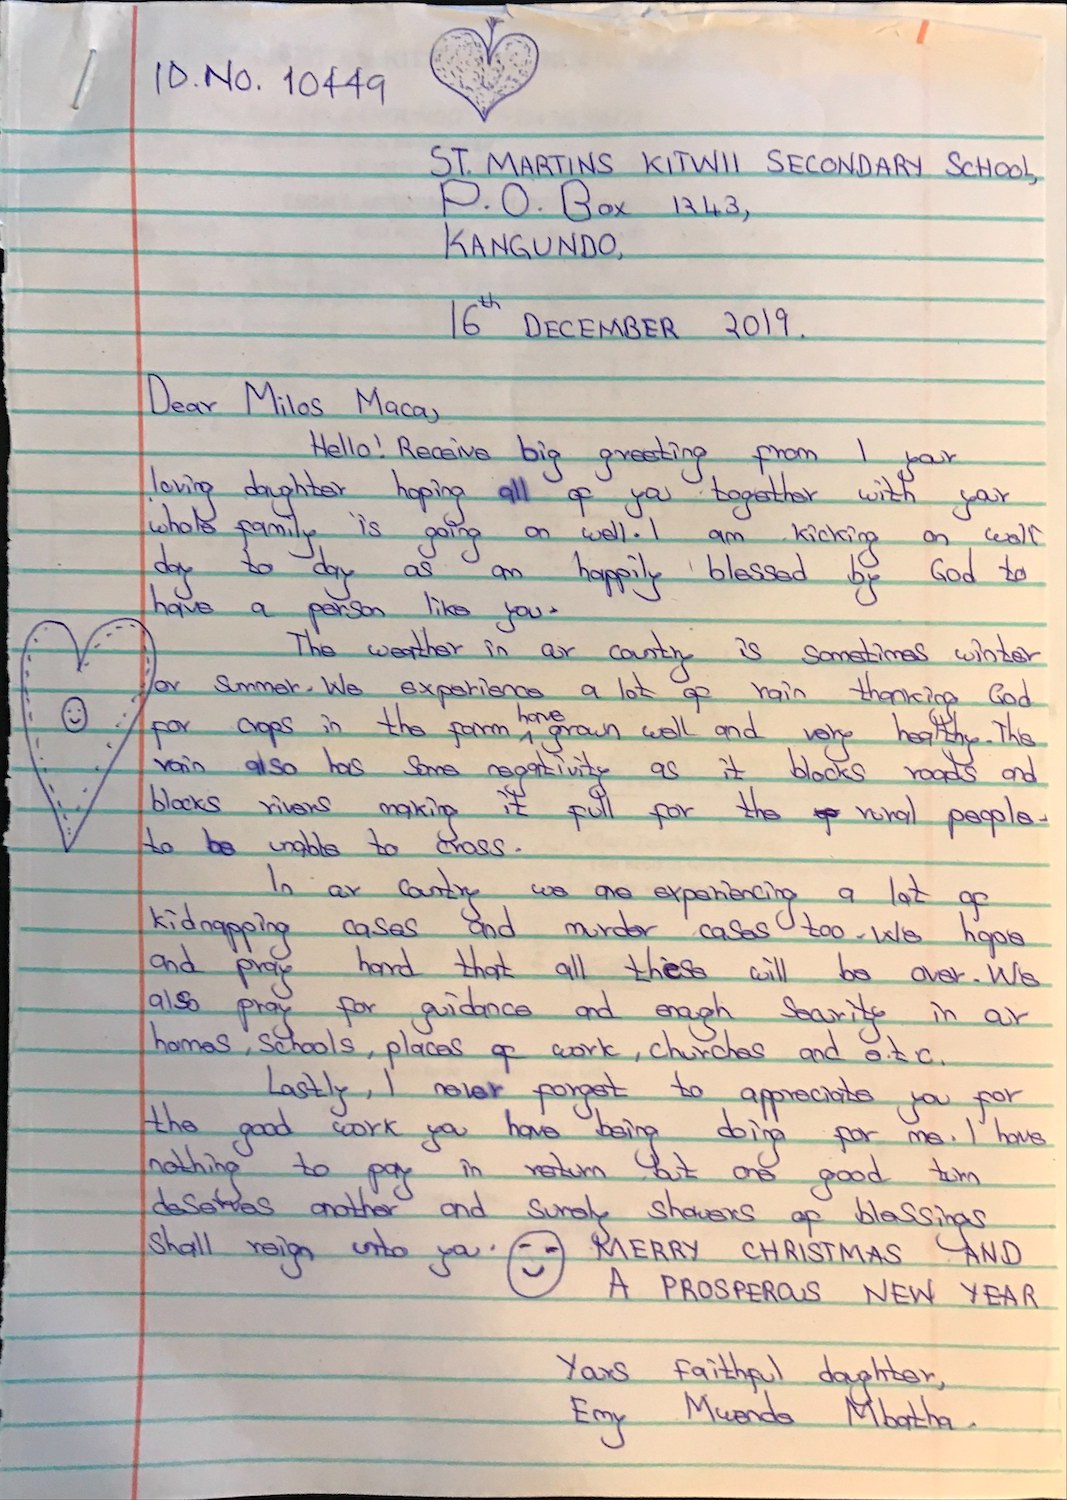 ID.No. 10449
ST. MARTINS KITWII SECONDARY SCHOOL,
P.O. Box 1243,
KANGUNDO,
16th DECEMBER 2019.
Dear Milos Maca,
Hello! Receive big greeting from I your
loving daughter hoping all of you together with your
whole family is going on well. I am kicking on well
day to day as am happily blessed by God to
have a person like you.
The weather in our country is sometimes winter
or summer. We experience a lot of rain thanking God
for crops in the farm have grown well and very healthy. The
rain also has some negativity as it blocks roads and
blocks rivers making it full for the rural people
to be unable to cross.
In our country we are experiencing a lot of
kidnapping cases and murder cases too. We hope
and pray hard that all these will be over. We
also pray for guidance and enough security in our
homes, schools, places of work, churches and e.t.c.
Lastly, I never forget to appreciate you for
the good work you have being doing for me. I have
nothing to pay in return but one good turn
deserves another and surely showers of blessings
shall reign unto you. MERRY CHRISTMAS AND
A PROSPEROUS NEW YEAR
Yours faithful daughter,
Emy Mwende Mbatha.